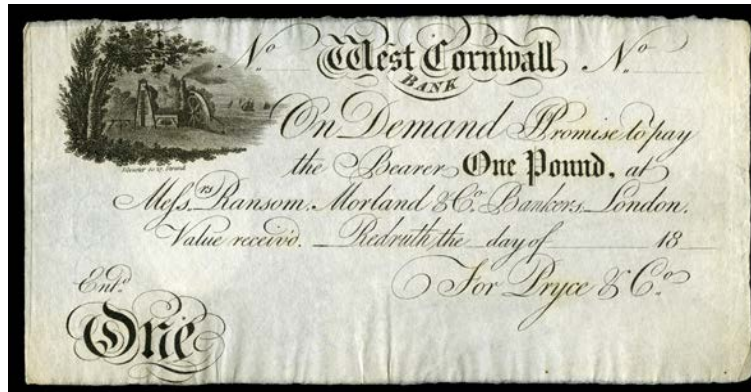 No West Cornwall No
BANK
On Demand I Promise to pay
the Bearer One Pound, at
Messrs Ransom, Morland & Co. Bankers London.
Value receiv'd. Redruth the day of 18
Entd.
For Pryce & Co.
One